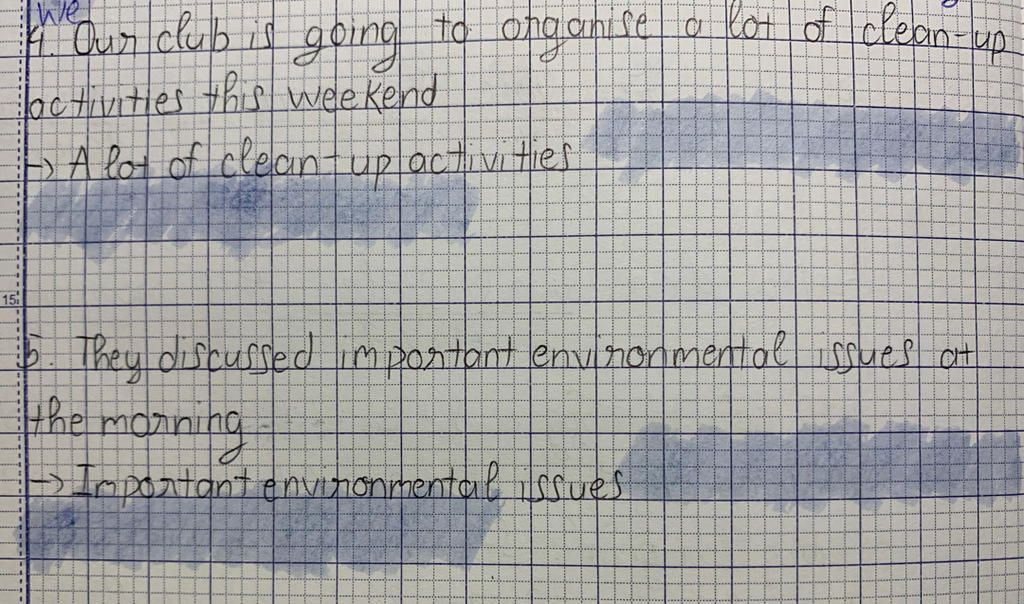 We
4. Our club is going to organise a lot of clean-up
activities this weekend
→ A lot of clean-up activities
15
5. They discussed important environmental issues at
the morning
→ Important environmental issues